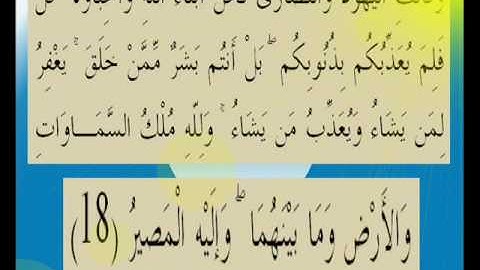 وَقَالَتِ الْيَهُودُ وَالنَّصَارَى نَحْنُ أَبْنَاءُ اللَّهِ وَأَحِبَّاؤُهُ ۚ قُلْ
فَلِمَ يُعَذِّبُكُم بِذُنُوبِكُم ۖ بَلْ أَنتُم بَشَرٌ مِّمَّنْ خَلَقَ ۚ يَغْفِرُ
لِمَن يَشَاءُ وَيُعَذِّبُ مَن يَشَاءُ ۚ وَلِلَّهِ مُلْكُ السَّمَـــاوَاتِ
وَالْأَرْضِ وَمَا بَيْنَهُمَا ۖ وَإِلَيْهِ الْمَصِيرُ (18)